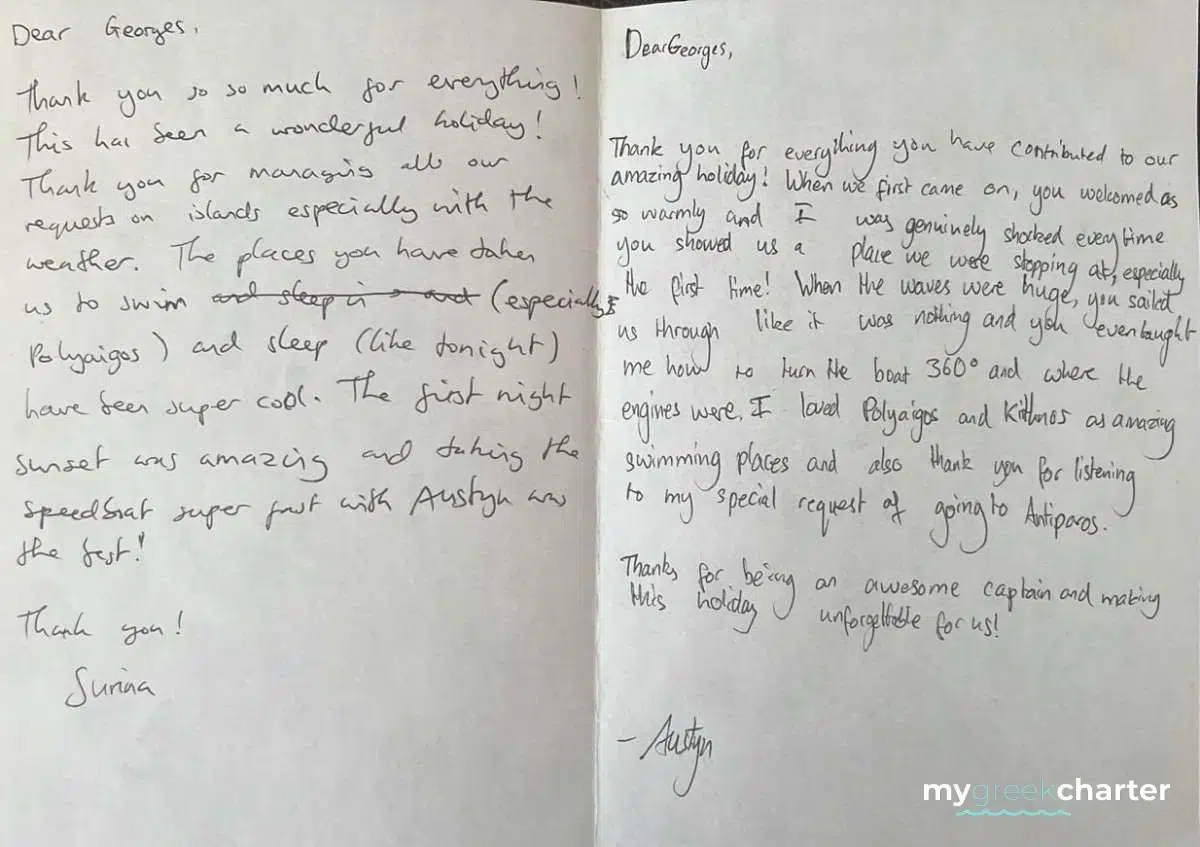 Dear Georges,
Thank you so so much for everything!
This has been a wonderful holiday!
Thank you for managing all our
requests on islands especially with the
weather. The places you have taken
us to swim and sleep in (especially
Polyaigos) and sleep (like tonight)
have been super cool. The first night
sunset was amazing and taking the
speedboat super fast with Austyn was
the best!
Thank you!
Surina
Dear Georges,
Thank you for everything you have contributed to our
amazing holiday! When we first came on, you welcomed us
so warmly and I was genuinely shocked everytime
you showed us a place we were stopping at, especially
the first time! When the waves were huge, you sailed
us through like it was nothing and you even taught
me how to turn the boat 360° and where the
engines were. I loved Polyaigos and Kithnos as amazing
swimming places and also thank you for listening
to my special request of going to Antiparos.
Thanks for being an awesome captain and making
this holiday unforgettable for us!
- Austyn
mygreekcharter